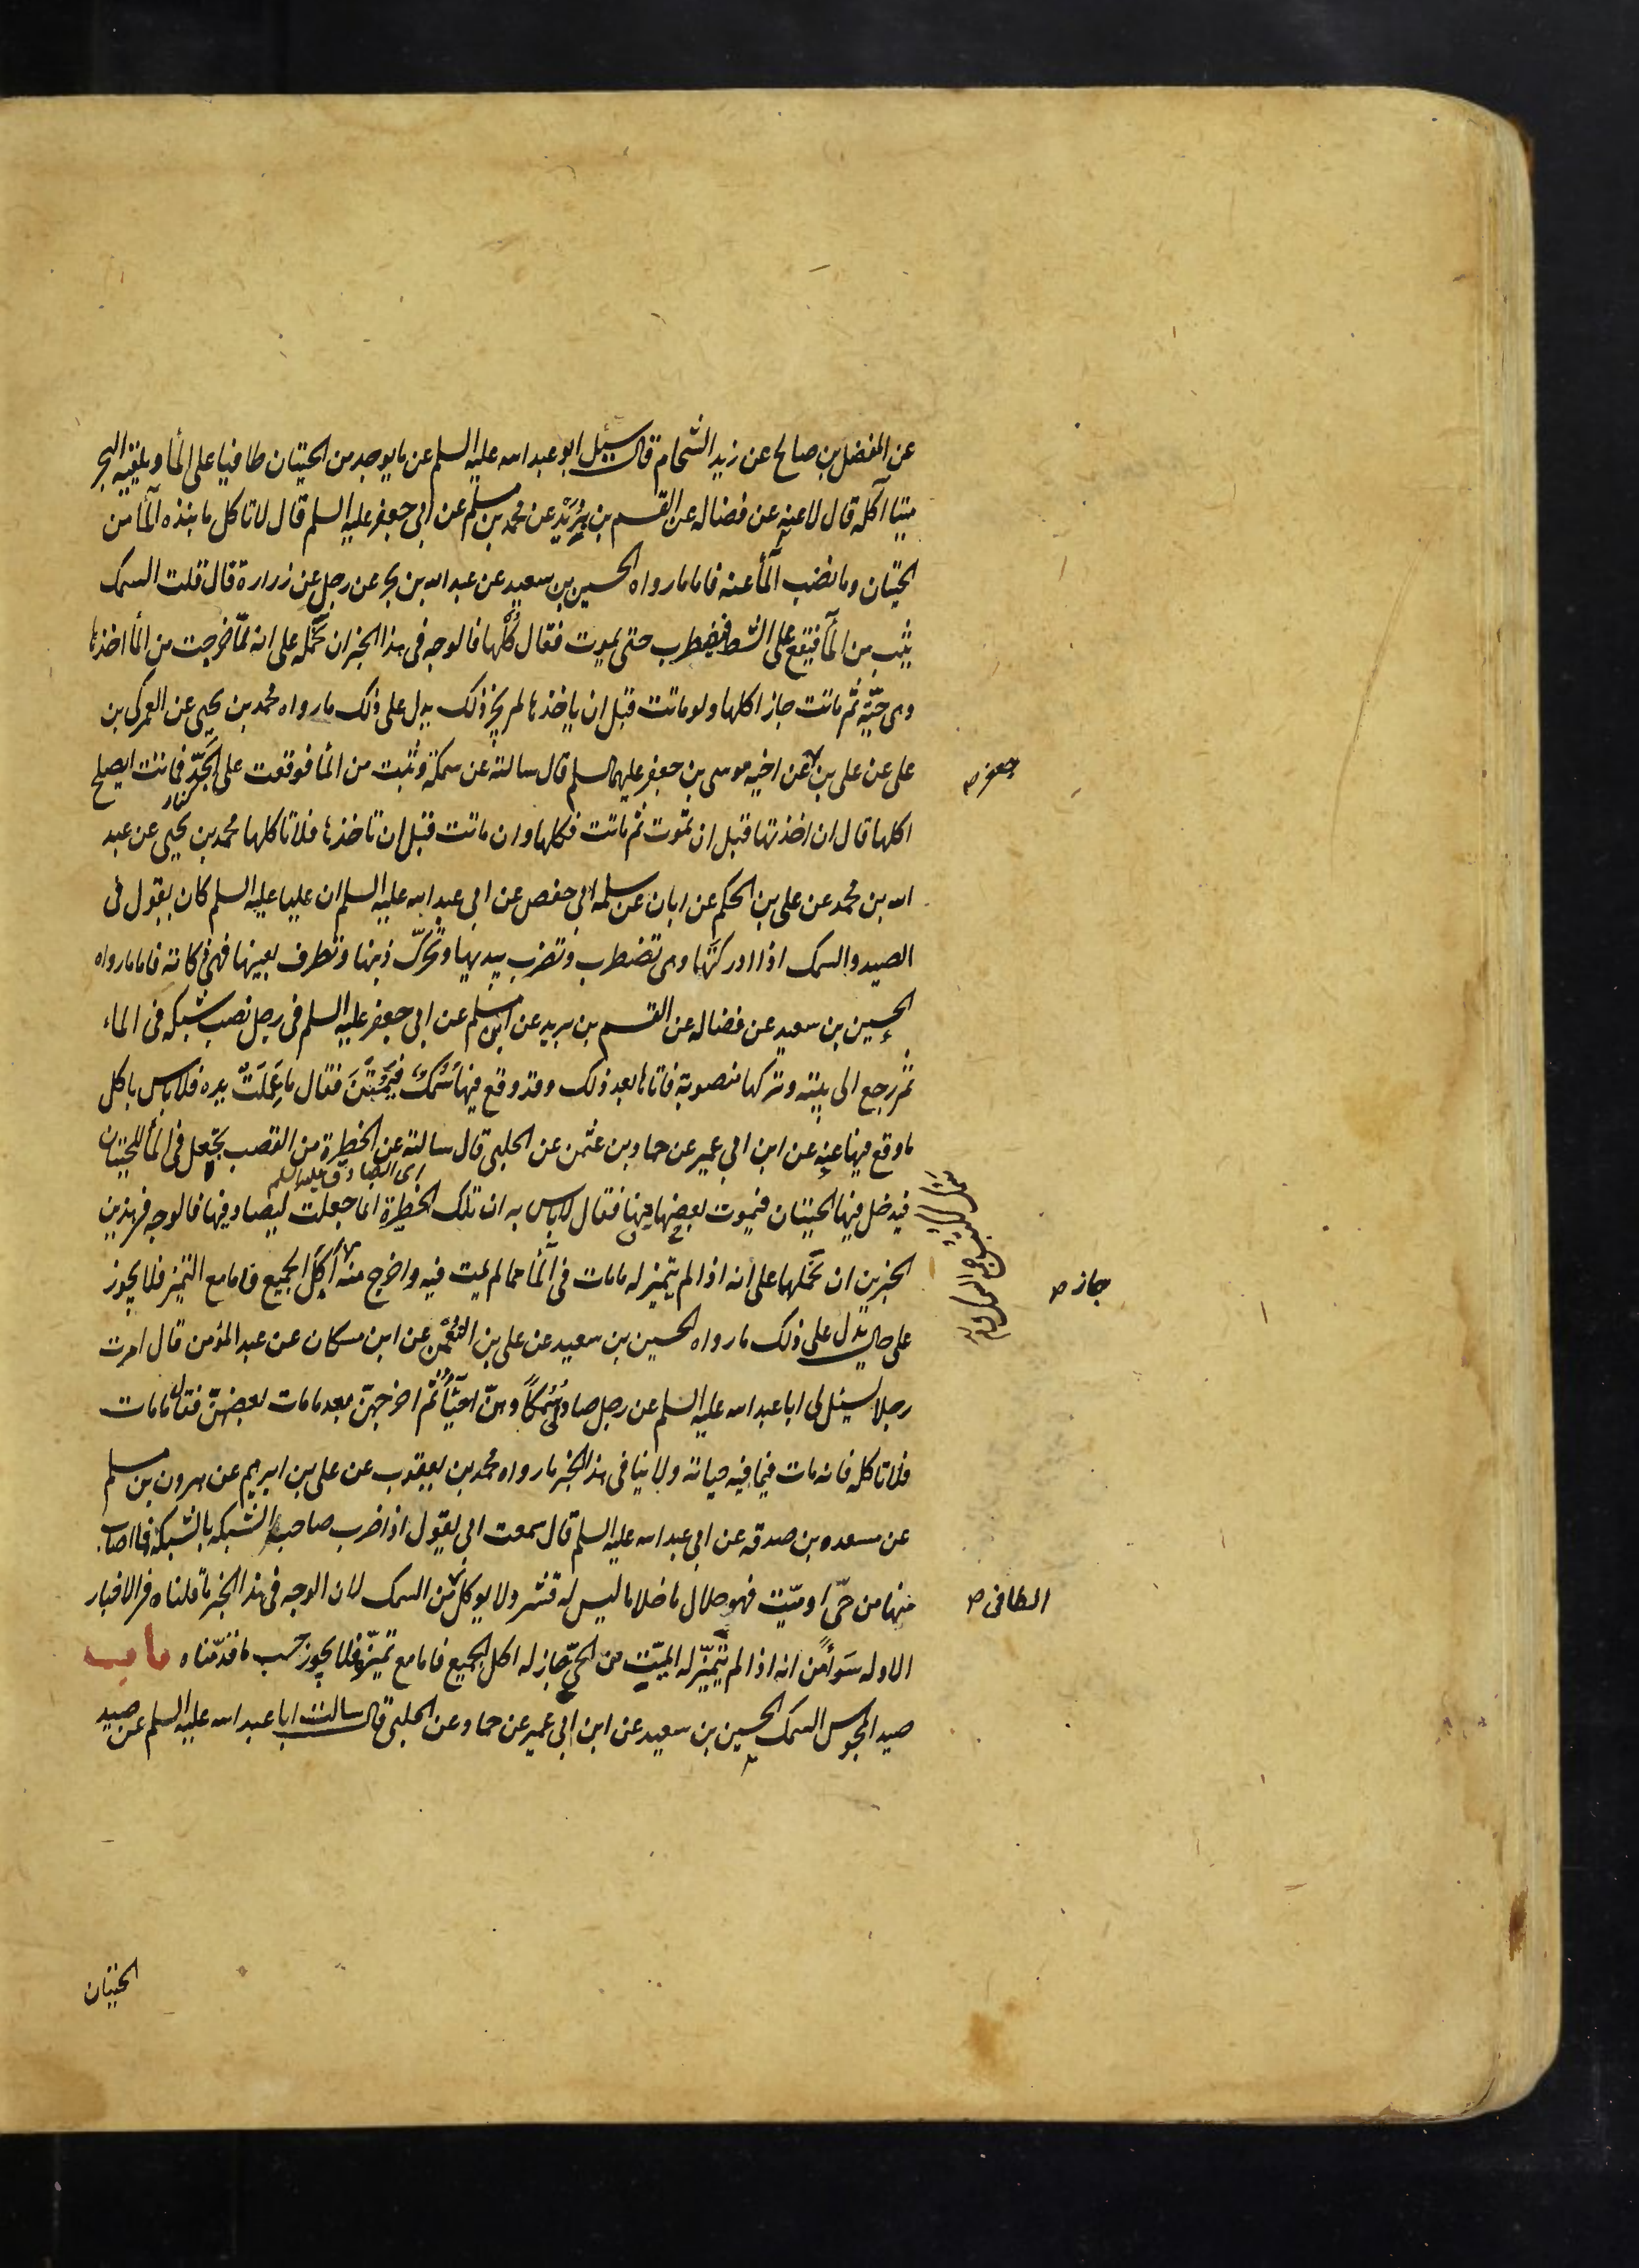 عن المفضل بن صالح عن زيد الشحام قال سئل ابو عبد الله عليه السلم عن ما يوجد من الحيتان طافيا على المأ ويلقيه البحر
ميتا آكله قال لا عنه عن فضاله عن القسم بن بُرَيْد عن محمد بن مسلم عن ابى جعفر عليه السلم قال لا تاكل ما نبذه المأ من
الحيتان وما نضب المأ عنه فاما ما رواه الحسين بن سعيد عن عبد الله بن بحر عن رجل عن زرارة قال قلت السمك
يثب من المأ فيقع على الشط فيضطرب حتى يموت فقال كُلْها فالوجه فى هذا الخبر ان نحمله على انه لمّا خرجت من المأ اخذها
وهى حيّة ثم ماتت جاز اكلها ولو ماتت قبل ان ياخذها لم يجز ذلك يدل على ذلك ما رواه محمد بن يحيى عن العمركى بن
على عن على بن عن اخيه موسى بن جعفر عليهما السلم قال سالته عن سمكة وثبت من المأ فوقعت على الجُدّ فماتت ايصلح
جعفر صح
كنار
اكلها قال ان اخذتها قبل ان تموت ثم ماتت فكلها وان ماتت قبل ان تاخذها فلا تاكلها محمد بن يحيى عن عبد
الله بن محمد عن على بن الحكم عن ابان عن سلمة ابى حفص عن ابى عبد الله عليه السلم ان عليا عليه السلم كان يقول فى
الصيد والسمك اذا ادركتَها وهى تضطرب وتضرب بيديها وتحرّك ذنبها وتطرف بعينها فهى ذكاته فاما ما رواه
الحسين بن سعيد عن فضاله عن القسم بن بريد عن ابن مسلم عن ابى جعفر عليه السلم فى رجل نصب شبكه فى الماء
ثم رجع الى بيته وتركها منصوبة فاتاها بعد ذلك وقد وقع فيها سَمَكٌ فَيَمُتْنَ فقال ما عَمِلَتْ يده فلا باس باكل
ما وقع فيها عنه عن ابن ابى عمير عن حماد بن عثمن عن الحلبى قال سالته عن الحظيرة من القصب يجعل فى المأ للحيتان
اى الصادق عليه السلم
فيدخل فيها الحيتان فيموت بعضها فيها فقال لا باس به ان تلك الحظيرة انما جعلت ليصاد فيها فالوجه فى هذين
الخبرين ان نحملهما على انه اذا لم يتميز له ما مات فى المأ مما لم يمت فيه واخرج منه أَكلُ الجميع فاما مع التميز فلا يجوز
جاز صح
على حال يدل على ذلك ما رواه الحسين بن سعيد عن على بن النُّعْمٰن عن ابن مسكان عن عبد المؤمن قال امرت
رجلا يسئل لى ابا عبد الله عليه السلم عن رجل صاد سَمَكاً وهنّ احيأ ثم اخرجهنّ بعد ما مات بعضهنّ فقال ما مات
فلا تاكله فانه مات فيما فيه حياته ولا ينافى هذا الخبر ما رواه محمد بن يعقوب عن على بن ابرهيم عن هرون بن مسلم
عن مسعده بن صدقه عن ابى عبد الله عليه السلم قال سمعت ابى يقول اذا ضرب صاحب الشبكه بالشبكة فما اصاب
فيها من حىّ او ميّت فهو حلال ما خلا ما ليس له قشر ولا يوكل من السمك لان الوجه فى هذا الخبر ما قلناه فى الاخبار
الطافى صح
الاوله سَوأً من انه اذا لم يتميّز له الميّت من الحىّ جاز له اكل الجميع فاما مع تميّزه فلا يجوز حسب ما قدّمناه باب
صيد المجوس السمك الحسين بن سعيد عن ابن ابى عمير عن حماد عن الحلبى قال سالت ابا عبد الله عليه السلم عن صيد
الحيتان